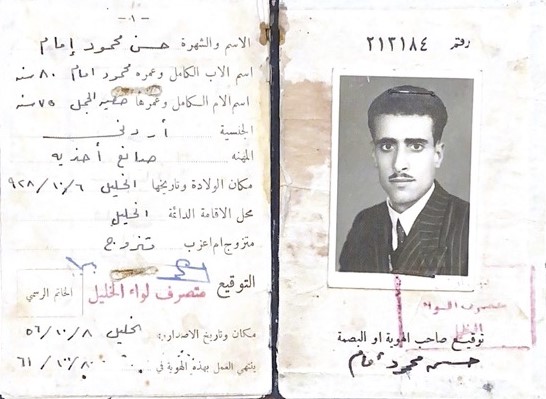 -١-
الاسم والشهرة حسن محمود إمام
اسم الاب الكامل وعمره محمود امام ٨٠ سنه
اسم الام الكامل وعمرها خضره الجمل ٧٥ سنه
الجنسية أردني
المهنه صانع أحذيه
مكان الولادة وتاريخها الخليل ٦/١٠/٩٢٨
محل الاقامة الدائمة الخليل
متزوج ام اعزب متزوج
التوقيع
متصرف لواء الخليل
الخاتم الرسمي
مكان وتاريخ الاصدار الخليل ٨/١٠/٥٦
ينتهي العمل بهذه الهوية في ٨/١٠/٦١
رقم ٢١٢١٨٤
متصرف لواء
الخليل
توقيع صاحب الهوية او البصمة
حسن محمود امام